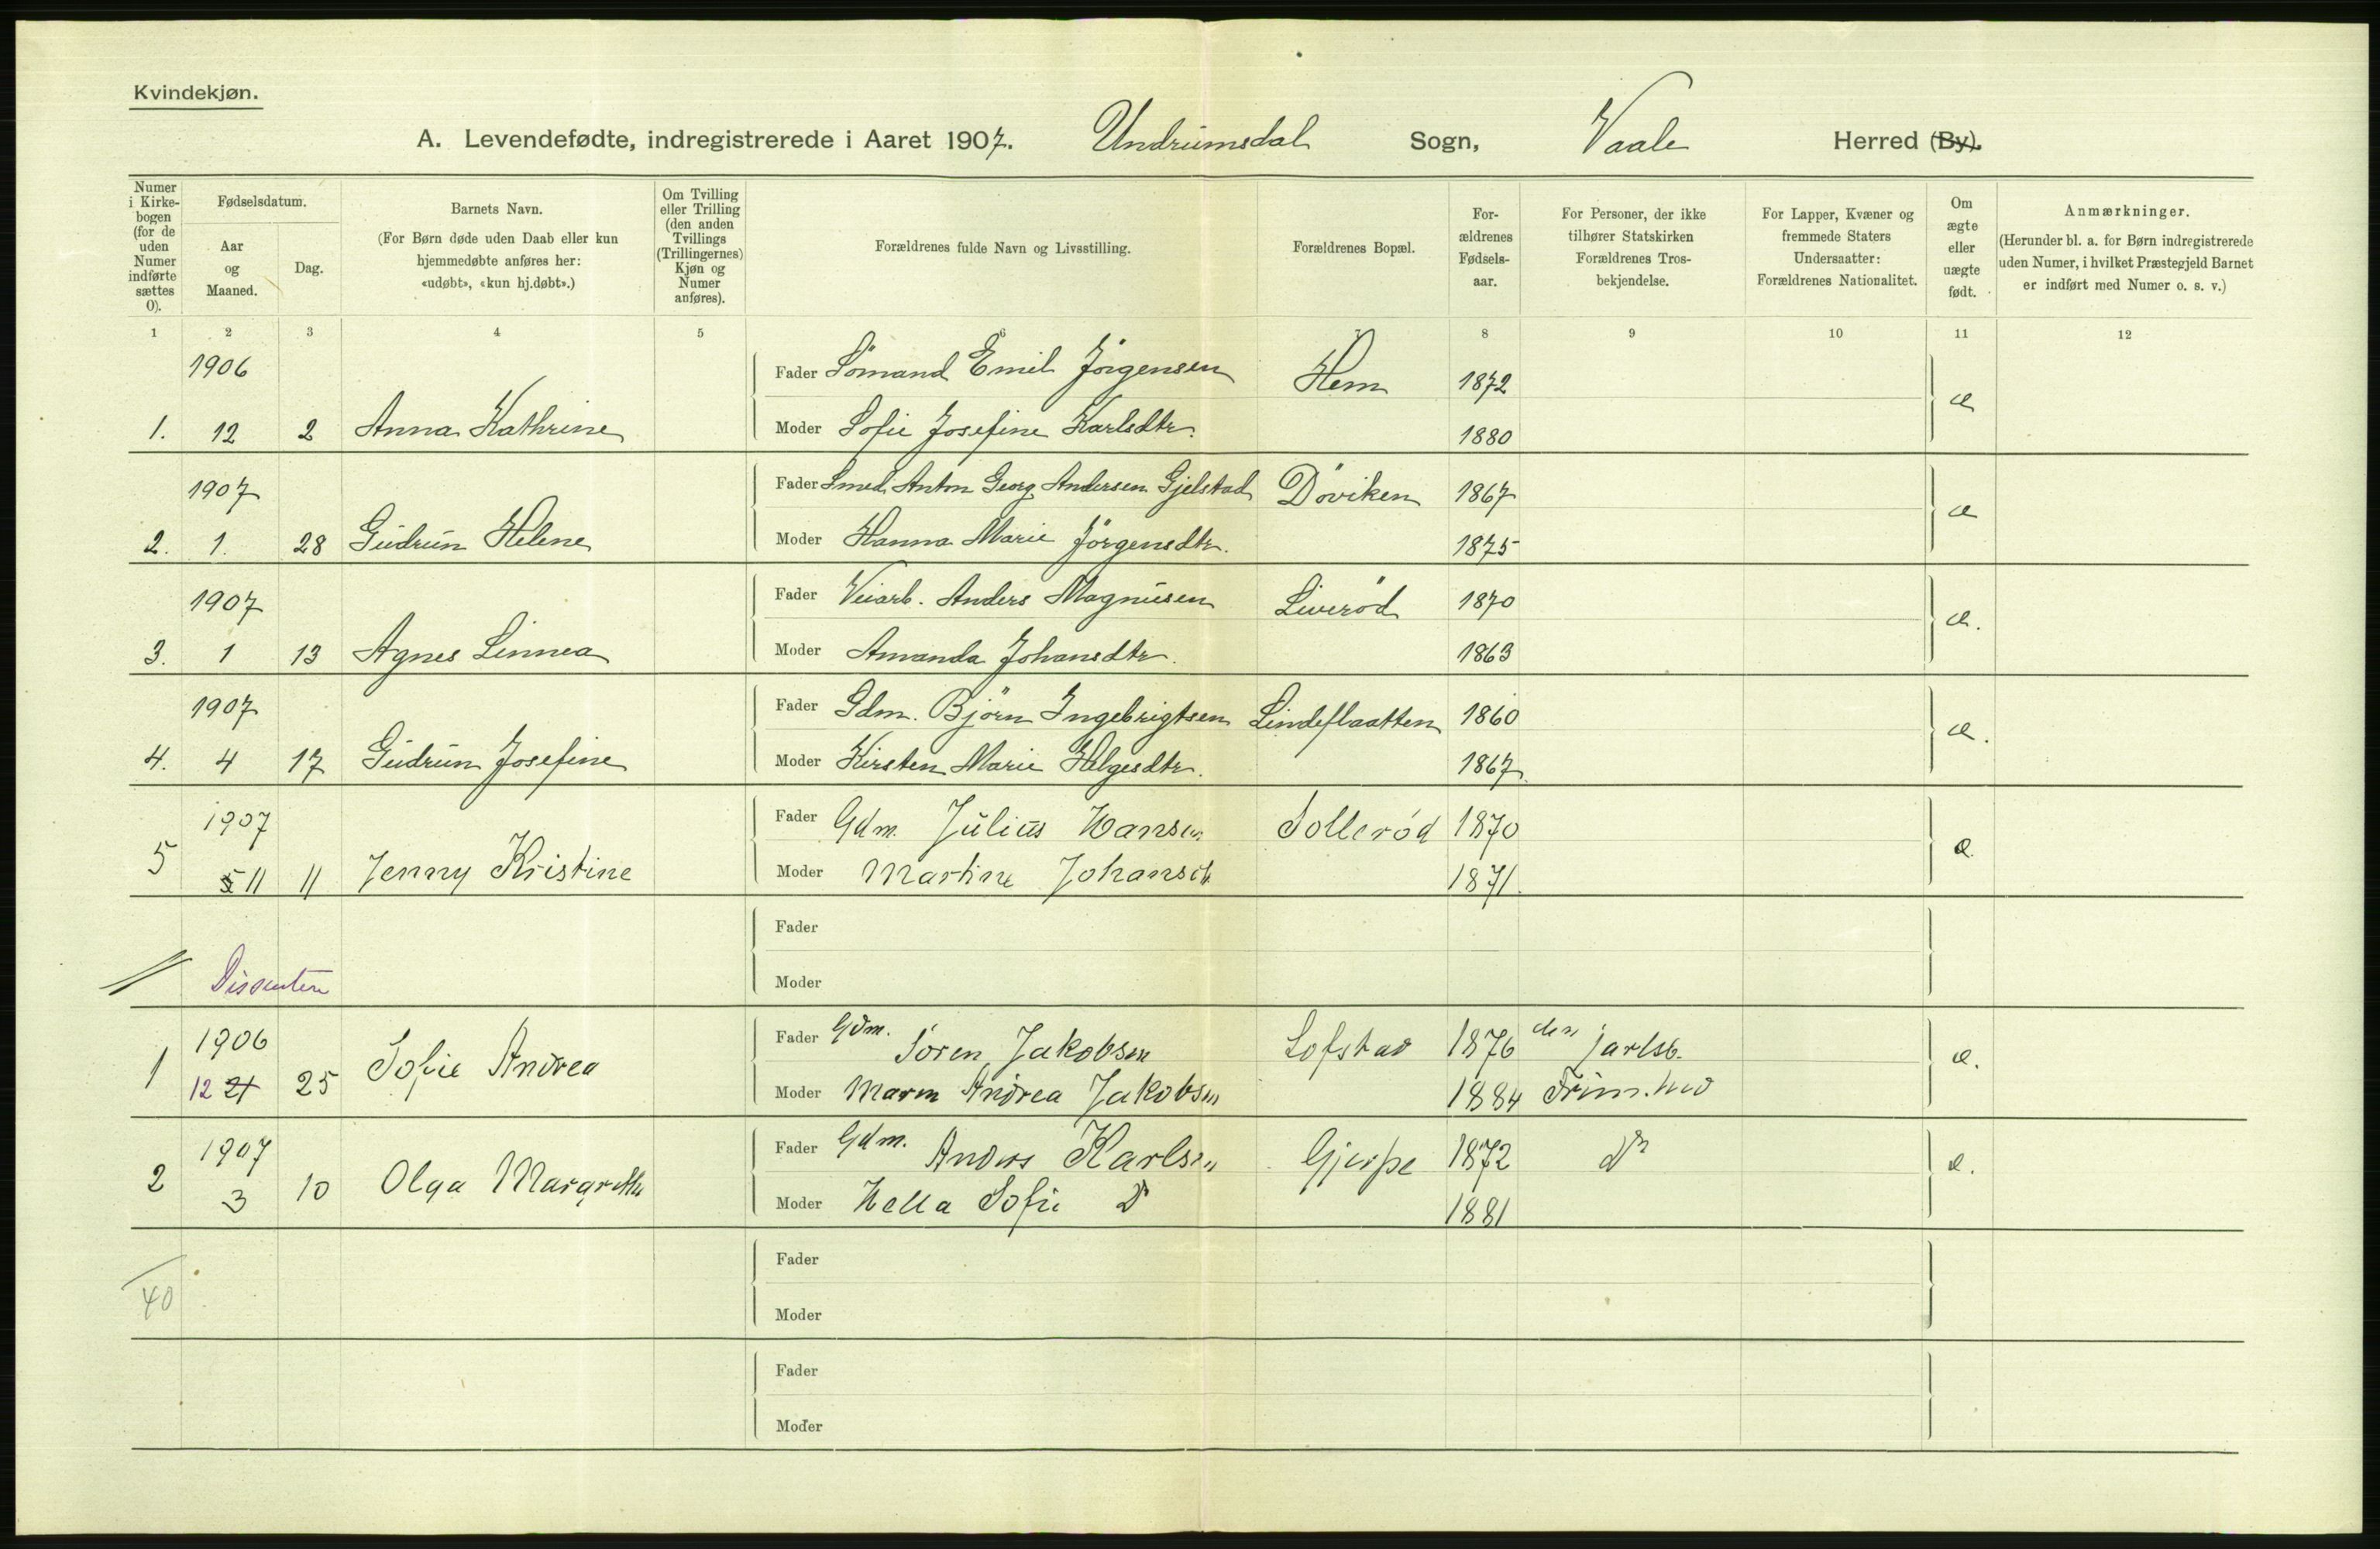 Kvindekjøn.
A. Levendefødte, indregistrerede i Aaret 1907. Undrumsdal Sogn, Vaale Herred (By).
Numer i Kirkebogen (for de uden Numer indførte sættes 0).
Fødselsdatum.
Aar og Maaned.
Dag.
Barnets Navn.
(For Børn døde uden Daab eller kun hjemmedøbte anføres her: «udøbt», «kun hj.døbt».)
Om Tvilling eller Trilling (den anden Tvillings (Trillingernes) Kjøn og Numer anføres).
Forældrenes fulde Navn og Livsstilling.
Forældrenes Bopæl.
Forældrenes Fødselsaar.
For Personer, der ikke tilhører Statskirken Forældrenes Trosbekjendelse.
For Lapper, Kvæner og fremmede Staters Undersaatter: Forældrenes Nationalitet.
Om ægte eller uægte født.
Anmærkninger.
(Herunder bl. a. for Børn indregistrerede uden Numer, i hvilket Præstegjeld Barnet er indført med Numer o. s. v.)
1 2 3 4 5 6 7 8 9 10 11 12
1906 Fader Sömand Emil Jörgensen Hem 1872 æ
1. 12 2 Anna Kathrine Moder Sofie Josefine Karlsdtr. 1880
1907 Fader Smed Anton Georg Andersen Gjelstad Döviken 1867 æ
2. 1. 28 Gudrun Helene Moder Hanna Marie Jörgensdtr. 1875
1907 Fader Veiarb. Anders Magnusen Liveröd 1870 æ.
3. 1 13 Agnes Linnea Moder Amanda Johansdtr. 1863
1907 Fader Gdm. Björn Ingebrigtsen Lindeflaatten 1860 æ.
4. 4 17 Gudrun Josefine Moder Kirsten Marie Helgesdtr. 1867
1907 Fader Gdm. Julius Hansen Sollerød 1870 æ
5 5 11 11 Jenny Kristine Moder Martine Johansdt 1871.
Fader
Dissentere Moder
1906 Fader Gdm. Sören Jakobsen Lofstad 1876 den jarlsb. æ.
1 12 21 25 Sofie Andrea Moder Andrea Jakobsen 1884
1907 Fader Gdm. Anders Karlsen Gjerpe 1872 Do æ.
2 3 10 Olga Margrethe Moder Hella Sofie Do 1881
Fader
40
Moder
Fader
Moder